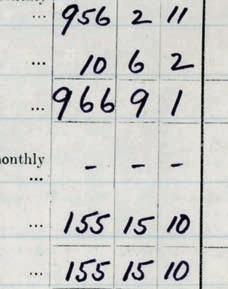 ... 956 2 11
... 10 6 2
... 966 9 1
onthly - - -
...
... 155 15 10
... 155 15 10